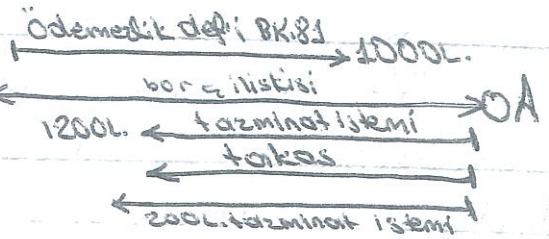 Ödemezlik def'i BK.81
1000L.
borç ilişkisi
OA
1200L. tazminat istemi
takas
200L. tazminat istemi